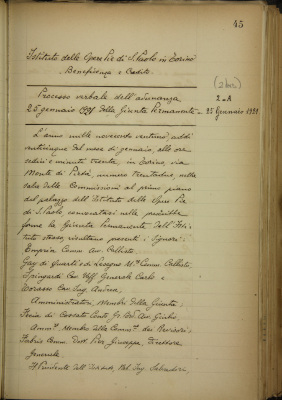 45
Istituto delle Opere Pie di S. Paolo in Torino
Beneficenza e Credito.
(2 bis)
Processo verbale dell'adunanza
2-A
25 gennaio 1921 della Giunta Permanente - 25 Gennaio 1921
L'anno mille novecento ventuno, addì
venticinque del mese di gennaio, alle ore
sedici e minuti trenta, in Torino, via
Monte di Pietà, numero trentadue, nella
sala delle Commissioni al primo piano
del palazzo dell'Istituto delle Opere Pie
di S. Paolo, convocatasi nelle prescritte
forme la Giunta Permanente dell'Isti-
tuto stesso, risultano presenti i Signori:
Comm. Avv.
Gay di Quarti e di Lesegno M.se Comm.
Cav. Uff. Generale Carlo e
Cav. Ing. Andrea,
Amministratori, membri della Giunta
di Cossato Conte Gr. Uff. Avv. Giulio,
Ammre membro della Commne dei Revisori
Comm. Dott. Pier Giuseppe, Direttore
Generale
Il Presidente dell'Istituto, Ing. Salvadori